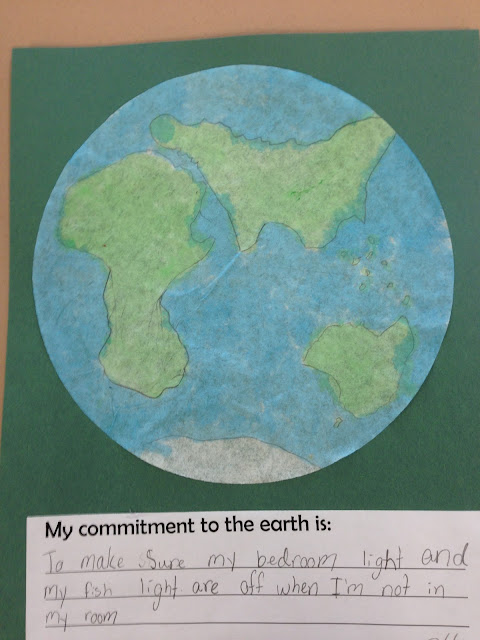 My commitment to the earth is:
To make sure my bedroom light and
my fish light are off when I'm not in
my room